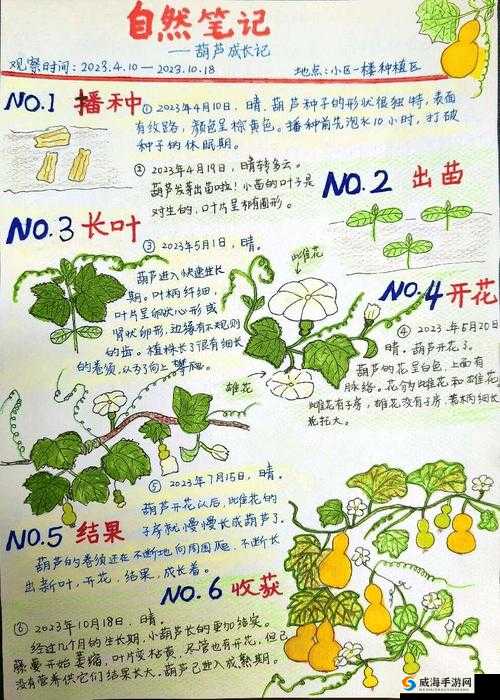 自然笔记
——葫芦成长记
观察时间：2023.4.10—2023.10.18
地点：小区一楼种植区
NO.1 播种
① 2023年4月10日，晴。葫芦种子的形状很独特，表面
有纹路，颜色呈棕黄色。播种前先泡水10小时，打破
种子的休眠期。
② 2023年4月19日，晴转多云。
葫芦发芽出苗啦！小苗的叶子是
对生的，叶片呈卵圆形。
NO.2 出苗
NO.3 长叶
③ 2023年5月1日，晴。
葫芦进入快速生长
期。叶柄纤细，
叶片呈卵状心形或
肾状卵形，边缘有不规则
的齿。植株长了很有细长
的卷须，从下向上攀爬。
雌花
雄花
NO.4 开花
④ 2023年5月20日
晴。葫芦开花了。
葫芦的花呈白色，上面有
脉络。花分雌花和雄花
雌花有子房，雄花没有子房，花柄细长
花托大。
⑤ 2023年7月15日，晴。
葫芦开花以后，雌花的
子房就慢慢长成葫芦了。
NO.5 结果
葫芦的卷须还在不断地向周围爬，不断长
出新叶，开花，结果，成长着。
NO.6 收获
⑥ 2023年10月18日，晴。
经过几个月的生长期，小葫芦长的更加结实。
藤蔓开始萎缩，叶片变枯黄，尽管也有开花，但已
没有营养供它们结果长大。葫芦已进入成熟期。
威海手游网